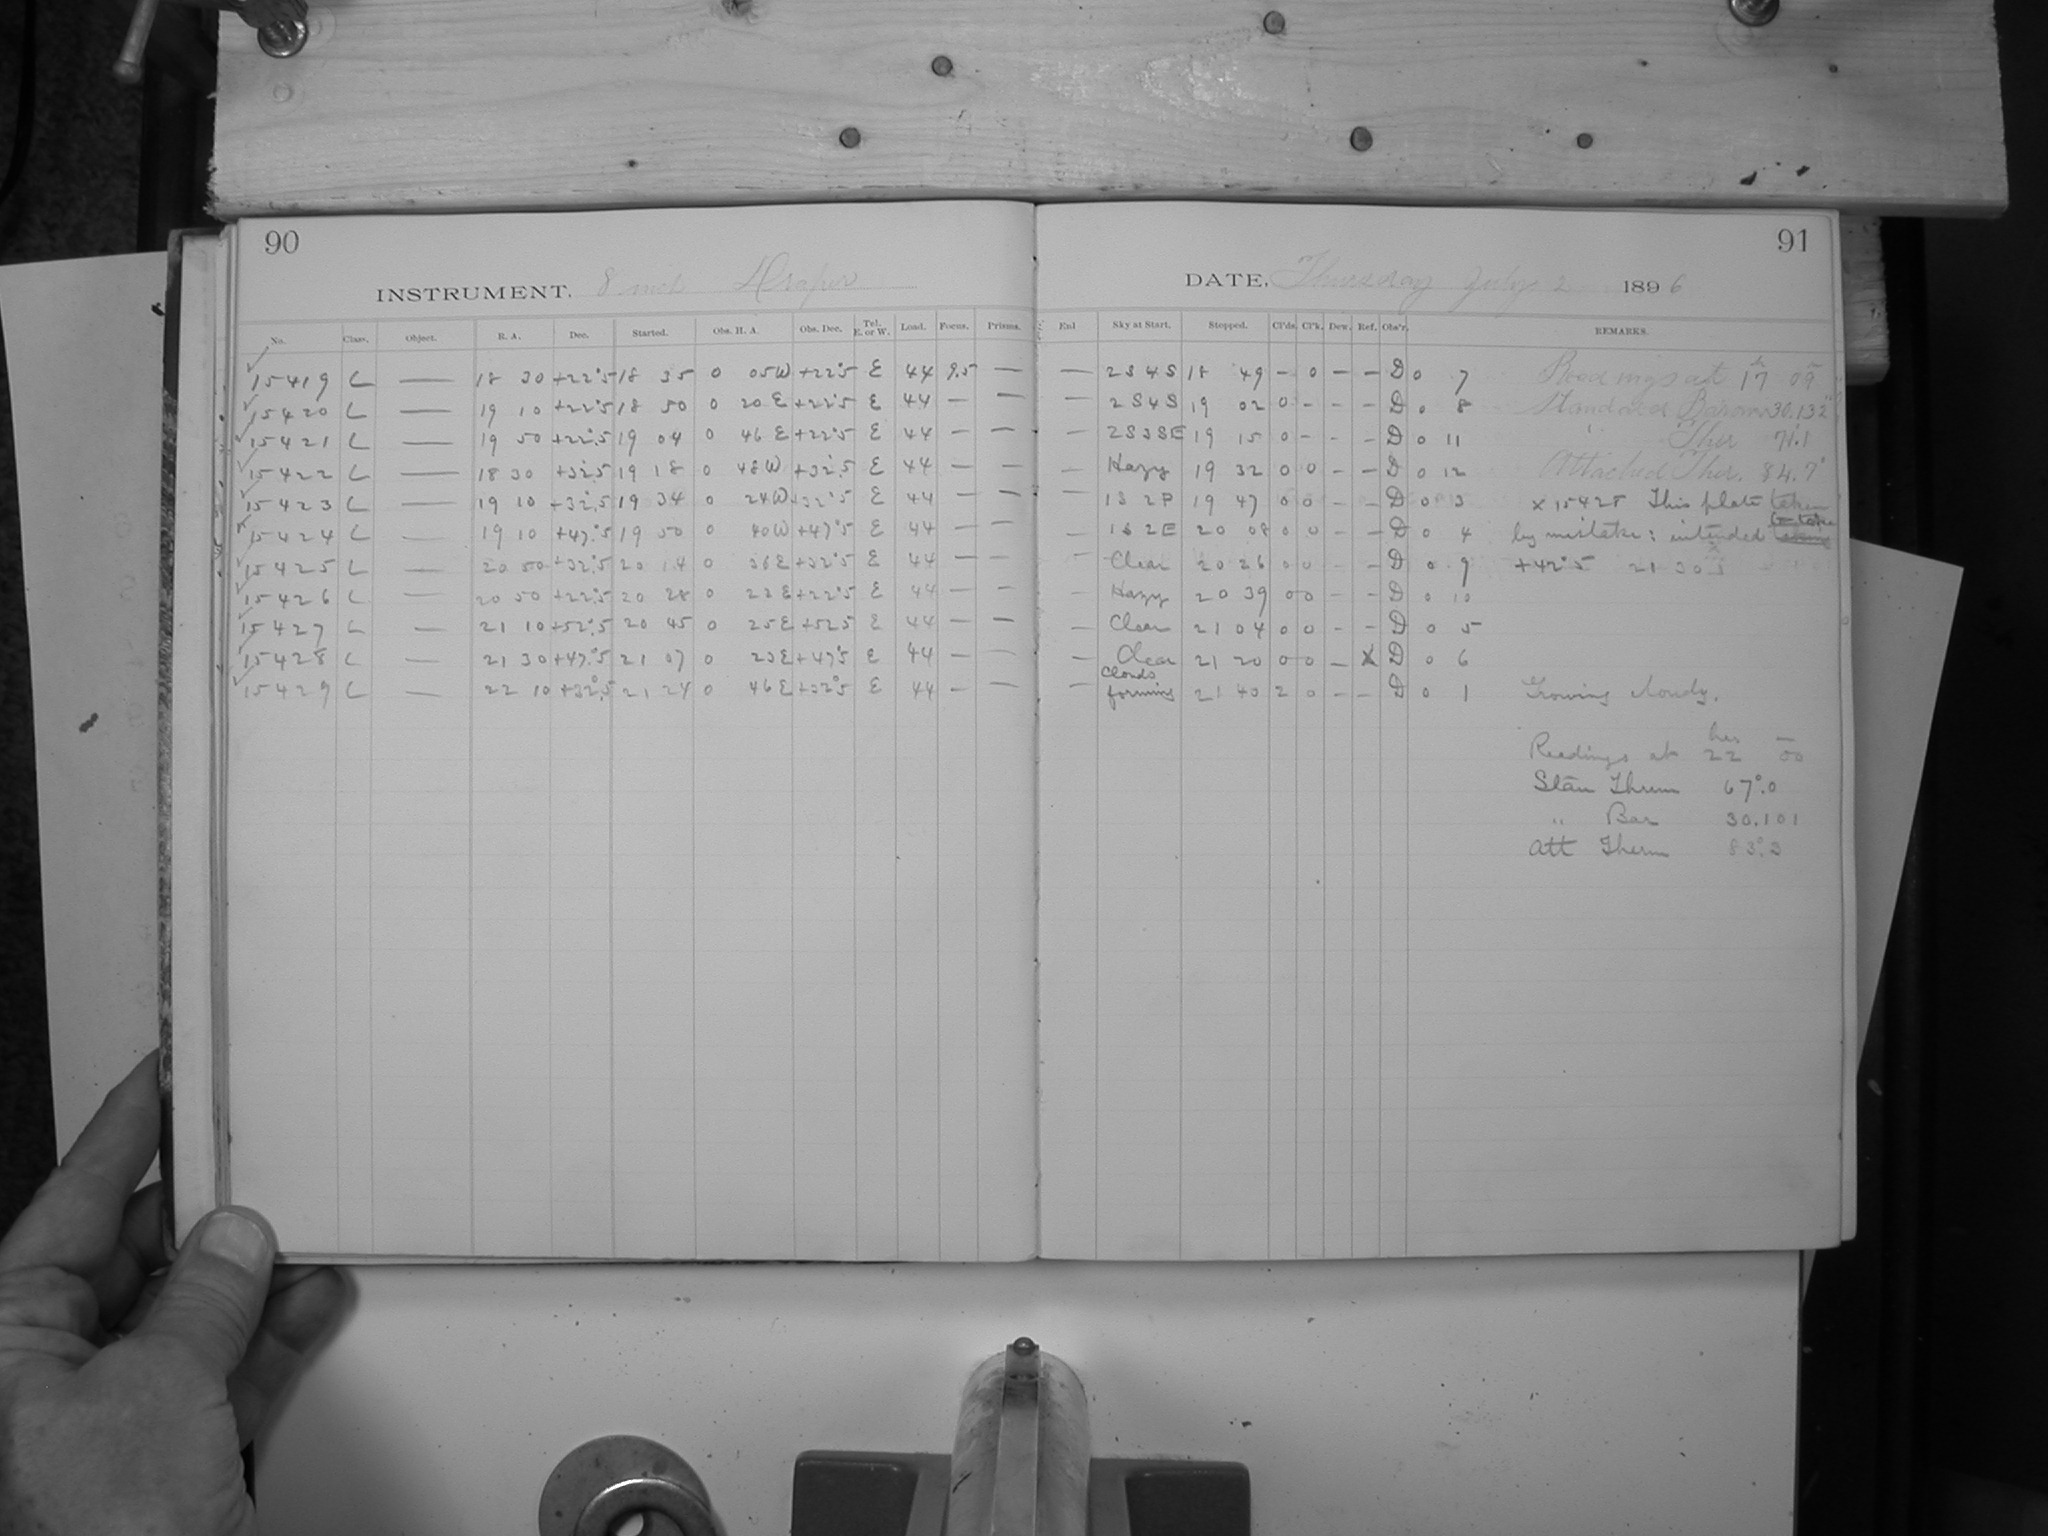 90
91
INSTRUMENT. 8 inch Draper
DATE. Thursday July 2 1896
No. Class. Object. R. A. Dec. Started. Obs. H. A. Obs. Dec. Tel. E. or W. Load. Focus. Prisms. Enl Sky at Start. Stopped. Cl'ds. Cl'k. Dew. Ref. Obs'r. REMARKS.
15419 L — 18 30 +22°.5 18 35 0 05W +22°.5 E 44 9.5 — — 2S 4S 18 49 - 0 - - D 0 7 Readings at 17h 09m
15420 L — 19 10 +22°.5 18 50 0 20 E +22°.5 E 44 — — — 2S4S 19 02 0 - - - D 0 8 Standard Barom 30.132
15421 L — 19 50 +22°.5 19 04 0 46 E +22°.5 E 44 — — — 2S3SE 19 15 0 - - - D 0 11 " Ther 71.1
15422 L — 18 30 +32°.5 19 18 0 48W +32°.5 E 44 — — — Hazy 19 32 0 0 - - D 0 12 Attached Ther. 84.7°
15423 L — 19 10 +32°.5 19 34 0 24W +32°.5 E 44 — — — 1S 2P 19 47 0 0 - - D 0 3 x 15428 This plate taken
15424 L — 19 10 +47°.5 19 50 0 40W +47°.5 E 44 — — — 1S 2E 20 08 0 0 - - D 0 4 by mistake: intended to take
15425 L — 20 50 +32°.5 20 14 0 36E +32°.5 E 44 — — — Clear 20 26 0 0 - - D 0 9 +42°.5 21 30
15426 L — 20 50 +22°.5 20 28 0 22 E +22°.5 E 44 — — — Hazy 20 39 0 0 - - D 0 10
15427 L — 21 10 +52°.5 20 45 0 25E +52.5 E 44 — — — Clear 21 04 0 0 - - D 0 5
15428 L — 21 30 +47°.5 21 07 0 23E +47°.5 E 44 — — — Clear 21 20 0 0 - X D 0 6
15429 L — 22 10 +32°.5 21 24 0 46E +32°.5 E 44 — — — Clouds forming 21 40 2 0 - - D 0 1 Growing cloudy.
Readings at 22 hrs 00 m
Stan Therm 67°.0
" Bar 30.101
Att Therm 83°.3